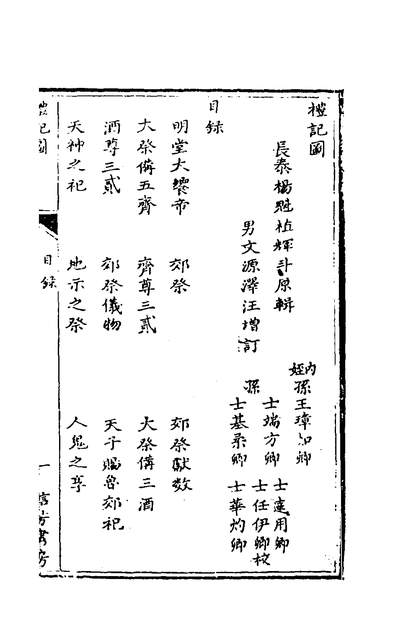 禮記圖
長泰楊魁植輝斗原輯
男文源澤汪增訂
內姪孫王璋如卿
孫
士瑞方卿 士達用卿
士任伊卿校
士基柔卿 士華灼卿
目錄
明堂大饗帝 郊祭 郊祭獻數
大祭備五齊 齊尊三貳 大祭備三酒
酒尊三貳 郊祭儀物 天子賜魯郊祀
天神之祀 地示之祭 人鬼之享
禮記圖 目錄 一